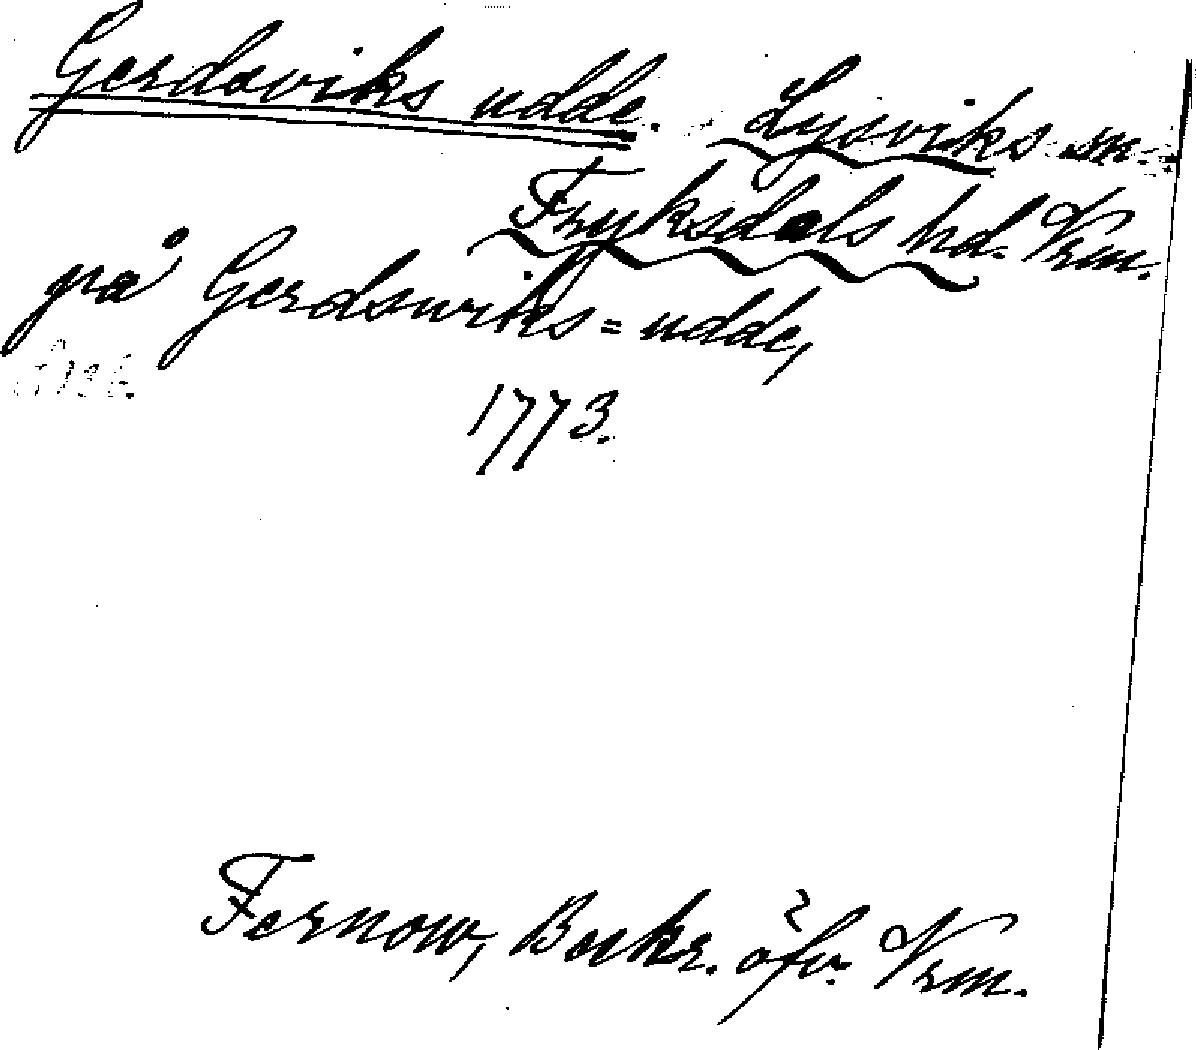 Gerdsviks udde. Lysviks sn.
Fryksdals hd. Vrm.
på Gerdswiks=udde,
1773.
Fernow, Beskr. öfv. Vrm.